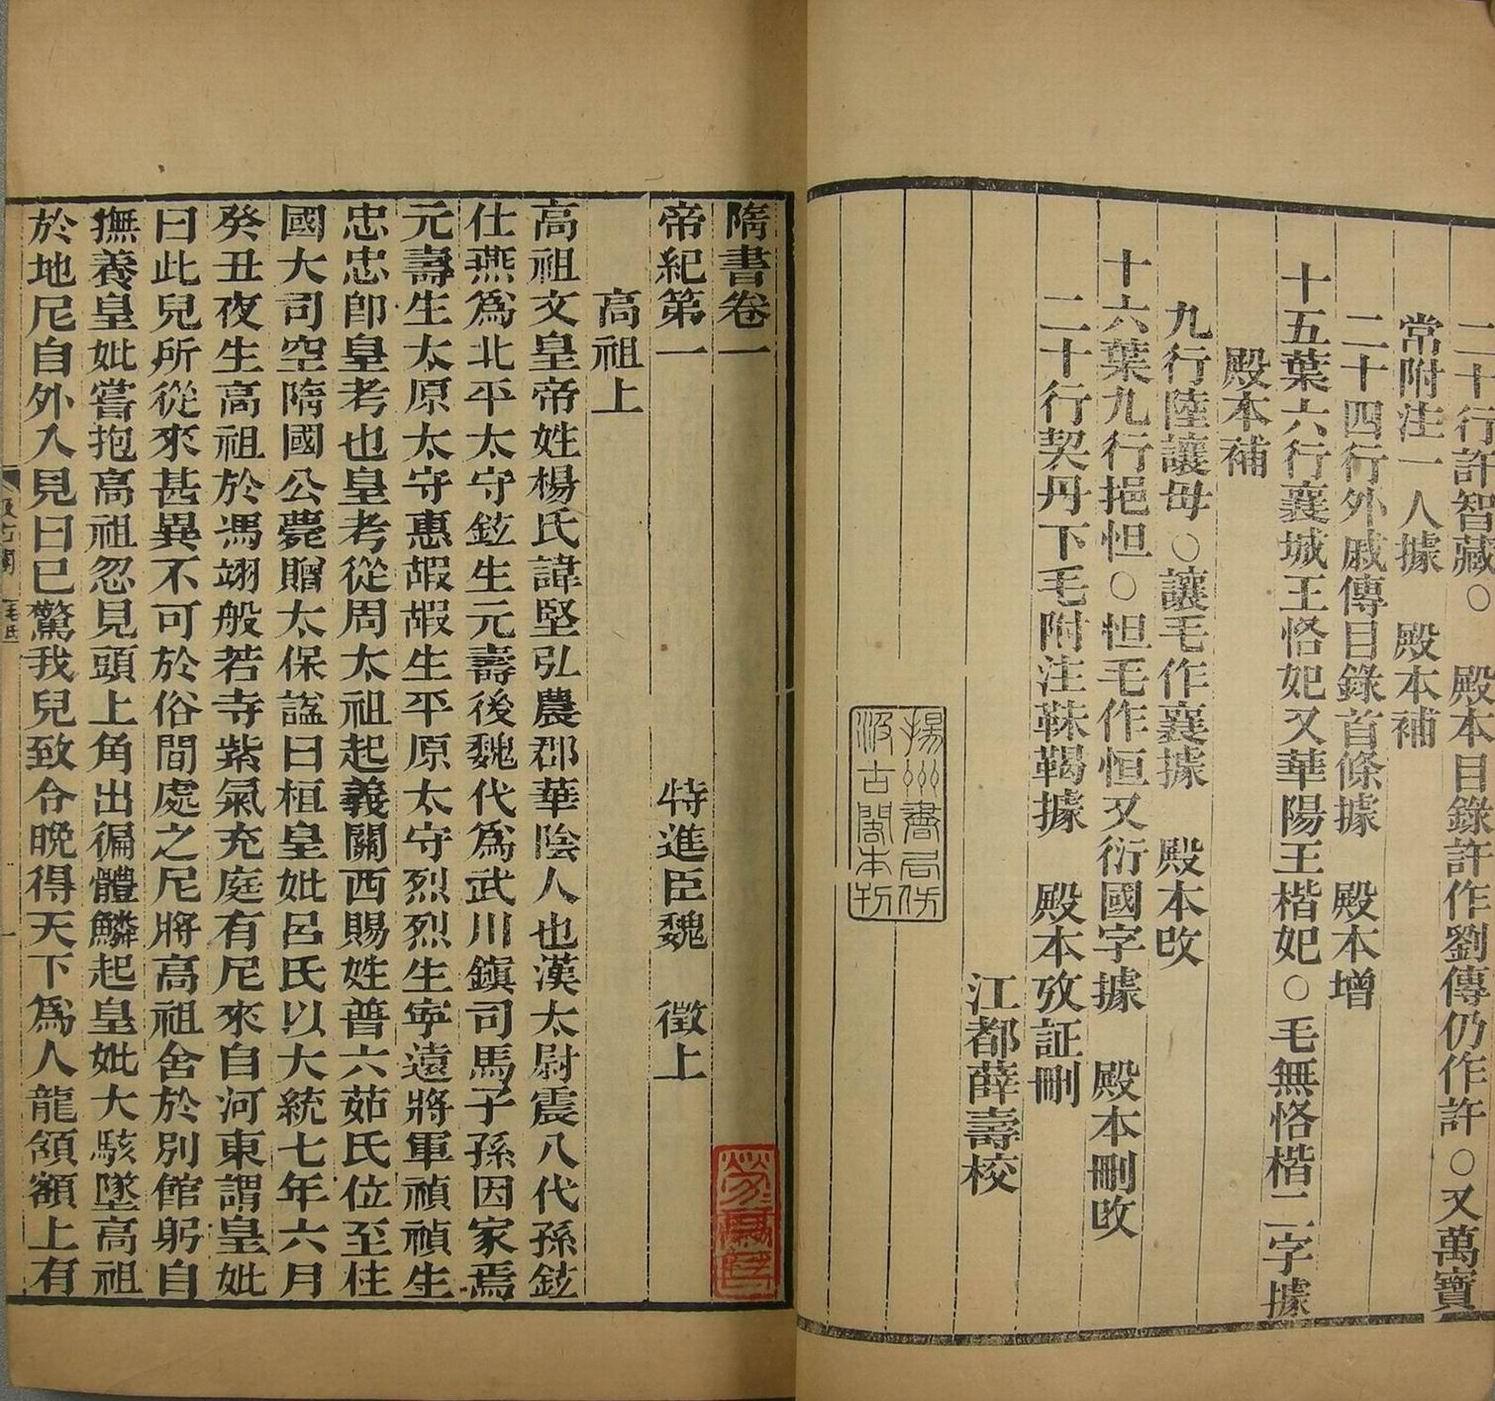 二十行許智藏○　殿本目錄許作劉傳仍作許○又萬寶
常附注一人據　殿本補
二十四行外戚傳目錄首條據　殿本增
十五葉六行襄城王恪妃又華陽王楷妃○毛無恪楷二字據
殿本補
九行陸讓母○讓毛作襄據　殿本改
十六葉九行挹怛○怛毛作恒又衍國字據　殿本刪改
二十行契丹下毛附注靺鞨據　殿本攷証刪
江都薛壽校
揚州書局仿
汲古閣本刊
隋書卷一
帝紀第一　特進臣魏　徵上
高祖上
高祖文皇帝姓楊氏諱堅弘農郡華陰人也漢太尉震八代孫鉉
仕燕爲北平太守鉉生元壽後魏代爲武川鎮司馬子孫因家焉
元壽生太原太守惠嘏嘏生平原太守烈烈生寧遠將軍禎禎生
忠忠卽皇考也皇考從周太祖起義關西賜姓普六茹氏位至柱
國大司空隋國公薨贈太保諡曰桓皇妣呂氏以大統七年六月
癸丑夜生高祖於馮翊般若寺紫氣充庭有尼來自河東謂皇妣
曰此兒所從來甚異不可於俗間處之尼將高祖舍於別館躬自
撫養皇妣嘗抱高祖忽見頭上角出徧體鱗起皇妣大駭墜高祖
於地尼自外入見曰已驚我兒致令晚得天下爲人龍頷額上有